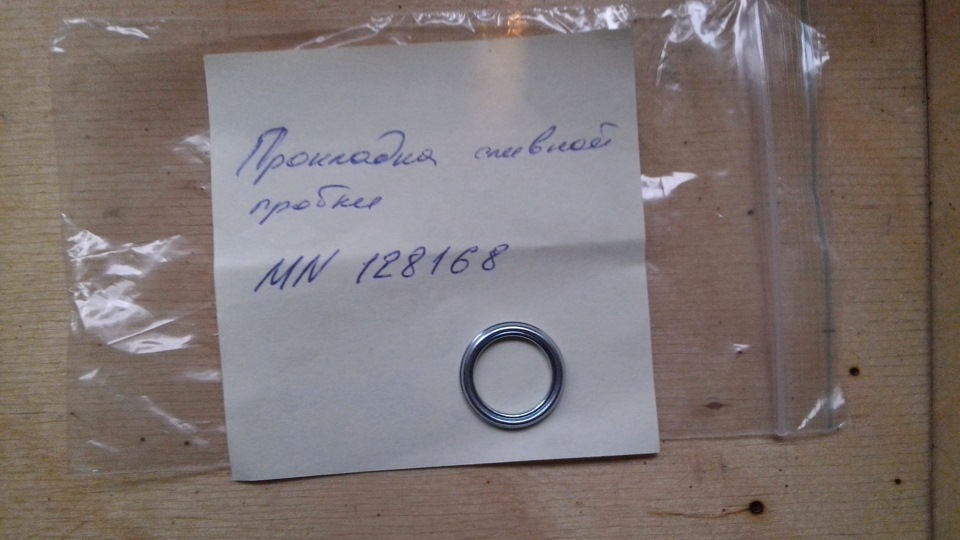 Прокладка сливной
пробки
MN 128168